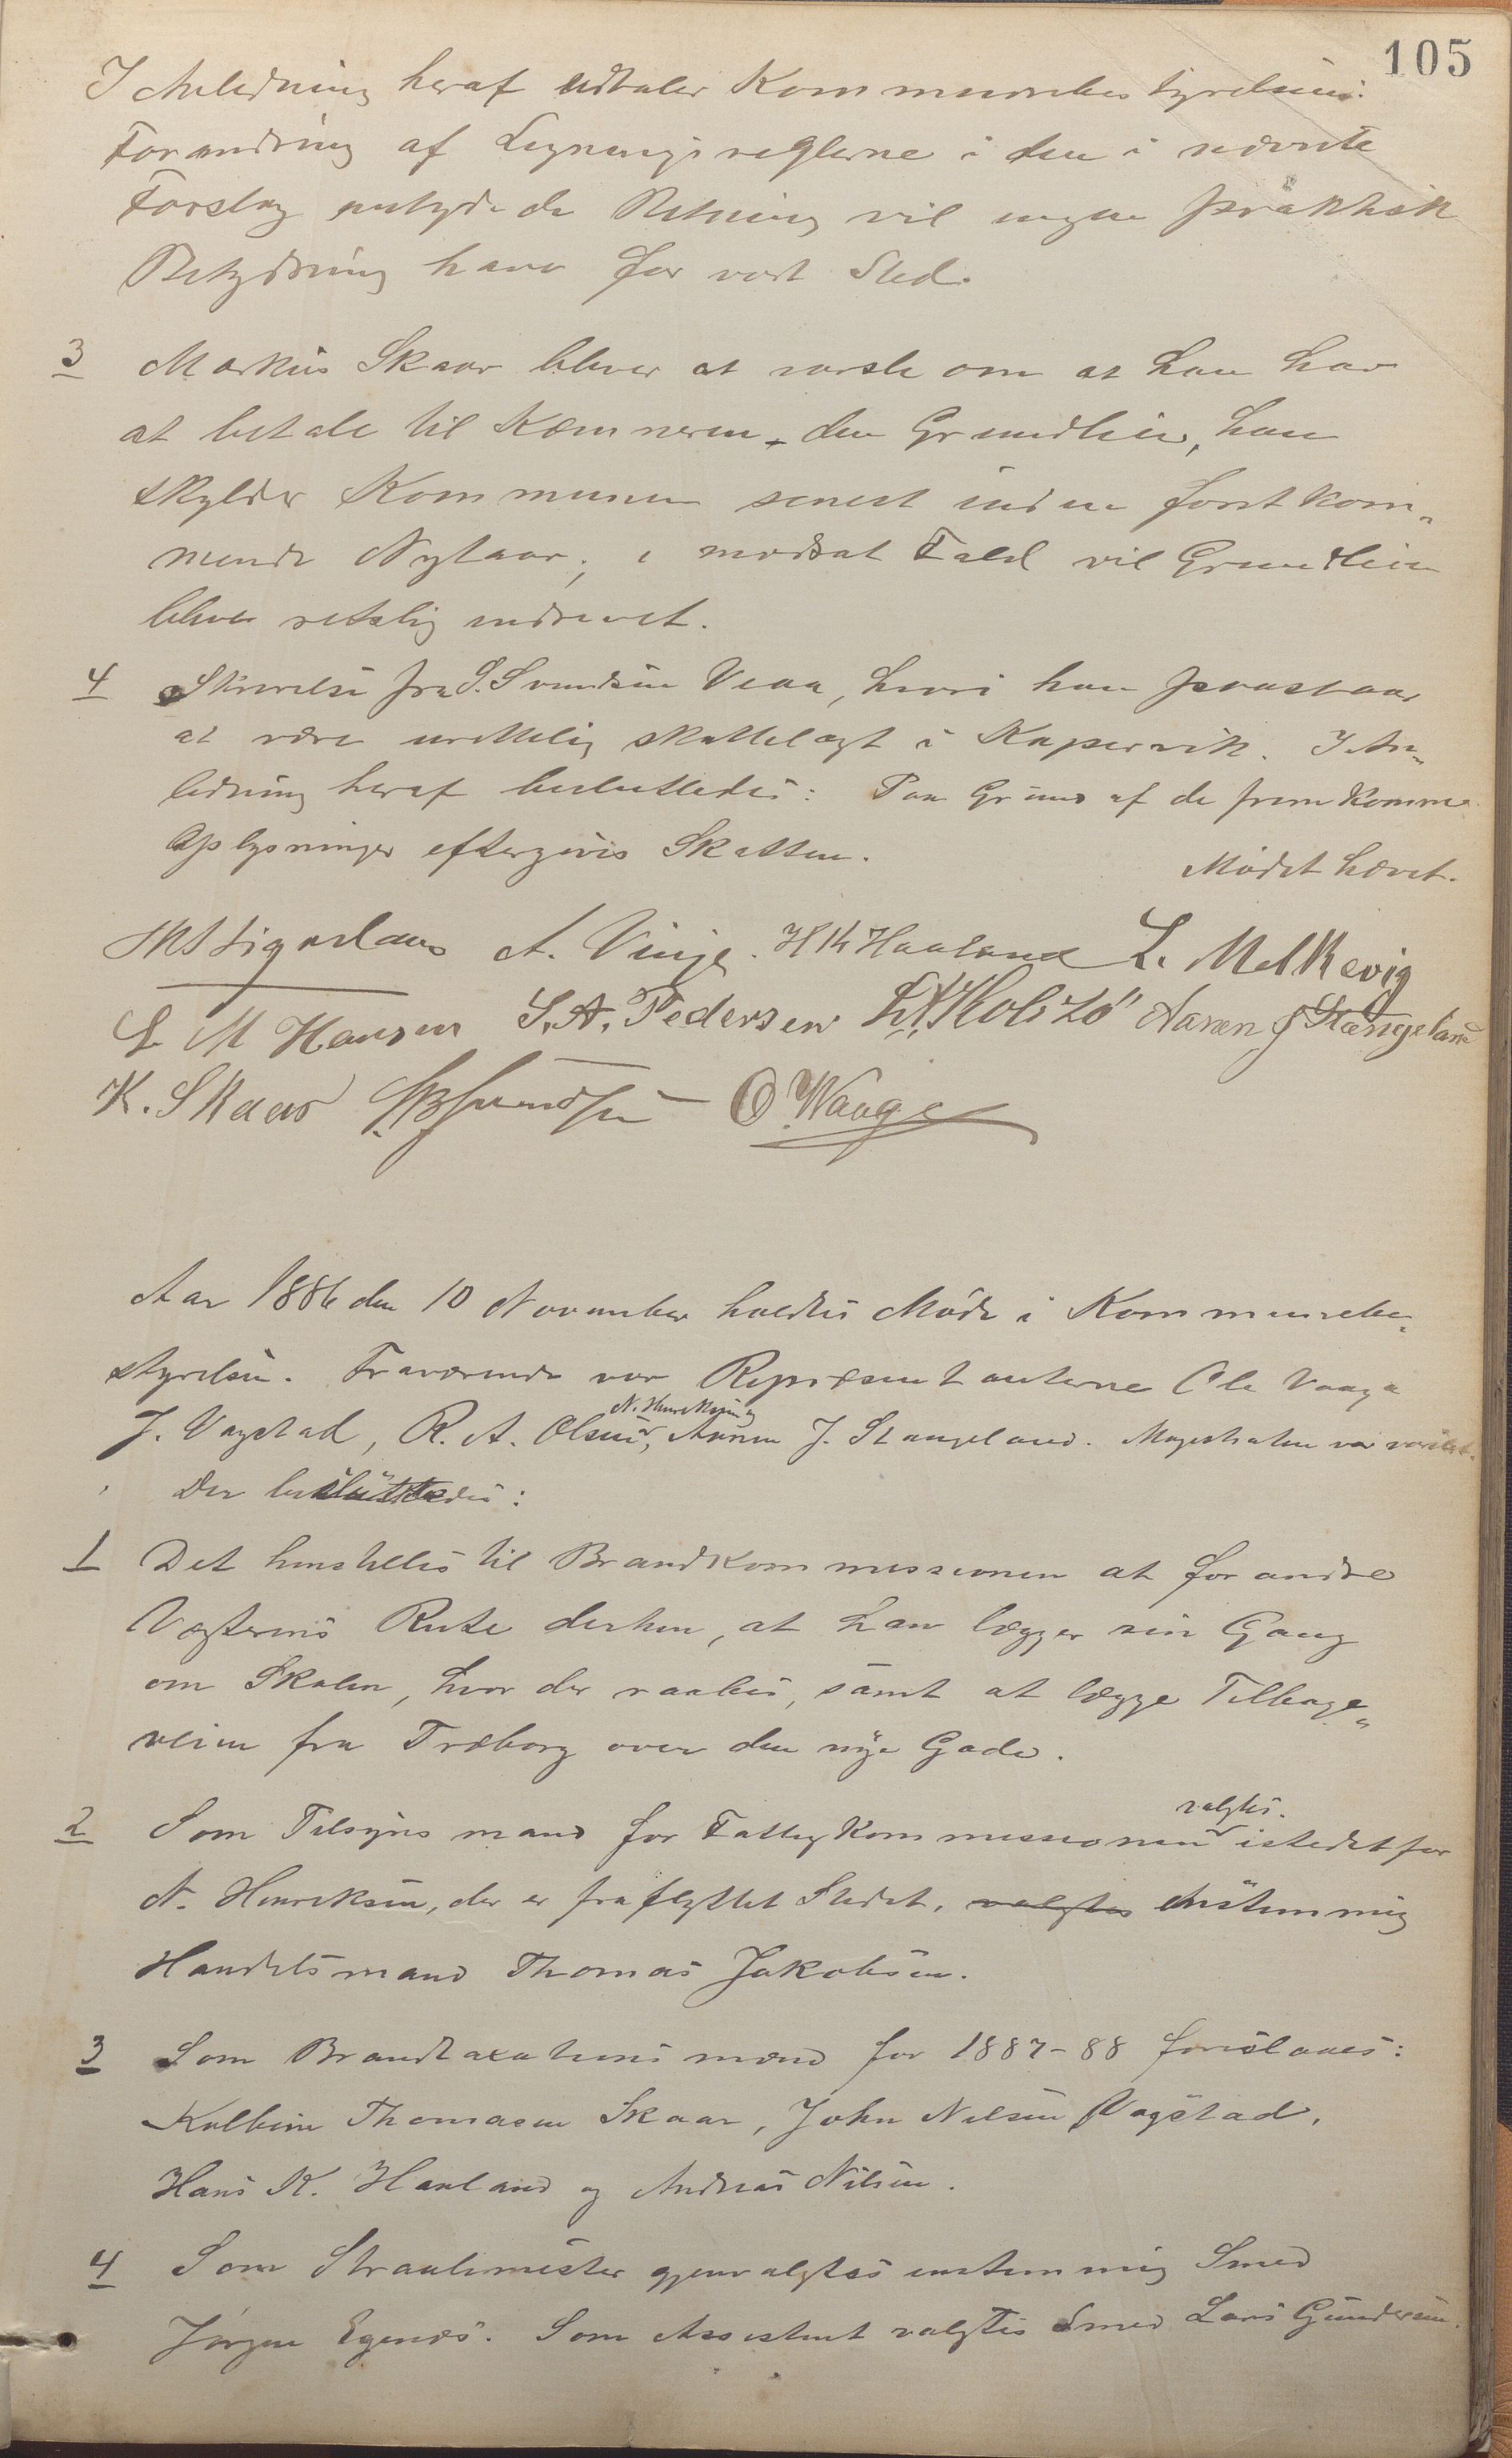 105
I Anledning heraf udtaler Kommunebestyrelsen:
Forandring af Ligningsreglerne i den i nævnte
Forslag antydede Retning vil ingen praktisk
Betydning have for vort Sted.
3 Markus Skaar bliver at varsle om at han har
at betale til Kæmneren den Grundleie, han
skylder Kommunen senest inden førstkom-
mende Nytaar; i modsat Fald vil Grundleien
blive retslig inddrevet.
4 Skrivelse fra S. Svendsen Veaa, hvori han paastaar
at være urettelig skattelagt i Kopervik. I An-
ledning heraf besluttedes: Paa Grund af de fremkomne
Oplysninger eftergives Skatten.
Mødet hævet.
A. Vinje. H K Haaland L. Medhevig
L M Hansen S. A. Pedersen Aanen J Stangeland
K. Skaar O. Waage
Aar 1886 den 10 November holdtes Møde i Kommunebe-
styrelsen. Fraværende var Repræsentanterne Ole Vaage
J. Vagstad, R. A. Olsen, N. Henriksen, Aanen J. Stangeland. Magistraten var varslet.
Der besluttedes:
1 Det henstilles til Brandkommissionen at forandre
Vægterens Rute derhen, at han lægger sin Gang
om Skolen, hvor der raabes, samt at lægge Tilbage-
veien fra Træborg over den nye Gade.
2 Som Tilsynsmand for Fattigkommissionen valgtes istedetfor
N. Henriksen, der er fraflyttet Stedet, valgtes enstemmig
Handelsmand Thomas Jakobsen.
3 Som Brandtaxationsmænd for 1887-88 foreslaaes:
Kolbein Thomasen Skaar, John Nilsen Vagstad,
Hans K. Haaland og Andreas Nilsen.
4 Som Straalemester gjenvalgtes enstemmig Smed
Jørgen Egenæs. Som Assistent valgtes Smed Lars Gundersen.